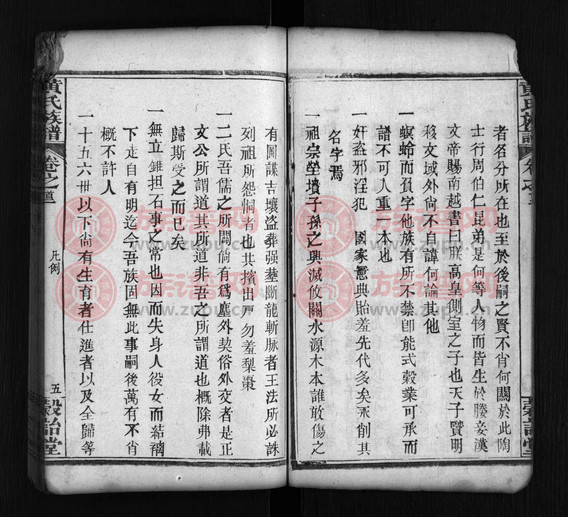 者名分所在也至於後嗣之賢不肖何關於此陶
士行周伯仁昆弟是何等人物而皆生於媵妾漢
文帝賜南越書曰朕高皇側室之子也天子賢明
移文域外尚不自諱何論其他
一螟蛉而負字他族有所不禁卽能式穀業可承而
譜不可人重一本也
一奸盜邪淫犯 國家憲典貽羞先代多矣永削其
名字焉
一祖宗塋墳子孫之興滅攸關水源木本誰敢傷之
有圖謀古壤盜葬强塟斷龍斬脉者王法所必誅
列祖所怨恫者也其擯出戸勿羞梨棗
一二氏吾儒之所閑倘有爲塵外契俗外交者是正
文公所謂道其所道非吾之所謂道也槪除弗載
歸斯受之而已矣
一無立錐担石事之常也因而失身人役女而結褵
下走自有明迄今吾族固無此事嗣後萬有不肖
槪不許人
一十五六世以下尚有生育者仕進者以及全歸等
黃氏族譜
卷之首
凡例
五
穀詒堂
黃氏族譜
卷之
穀詒堂
族譜网
www.zupu.cn
族譜网
www.zupu.cn